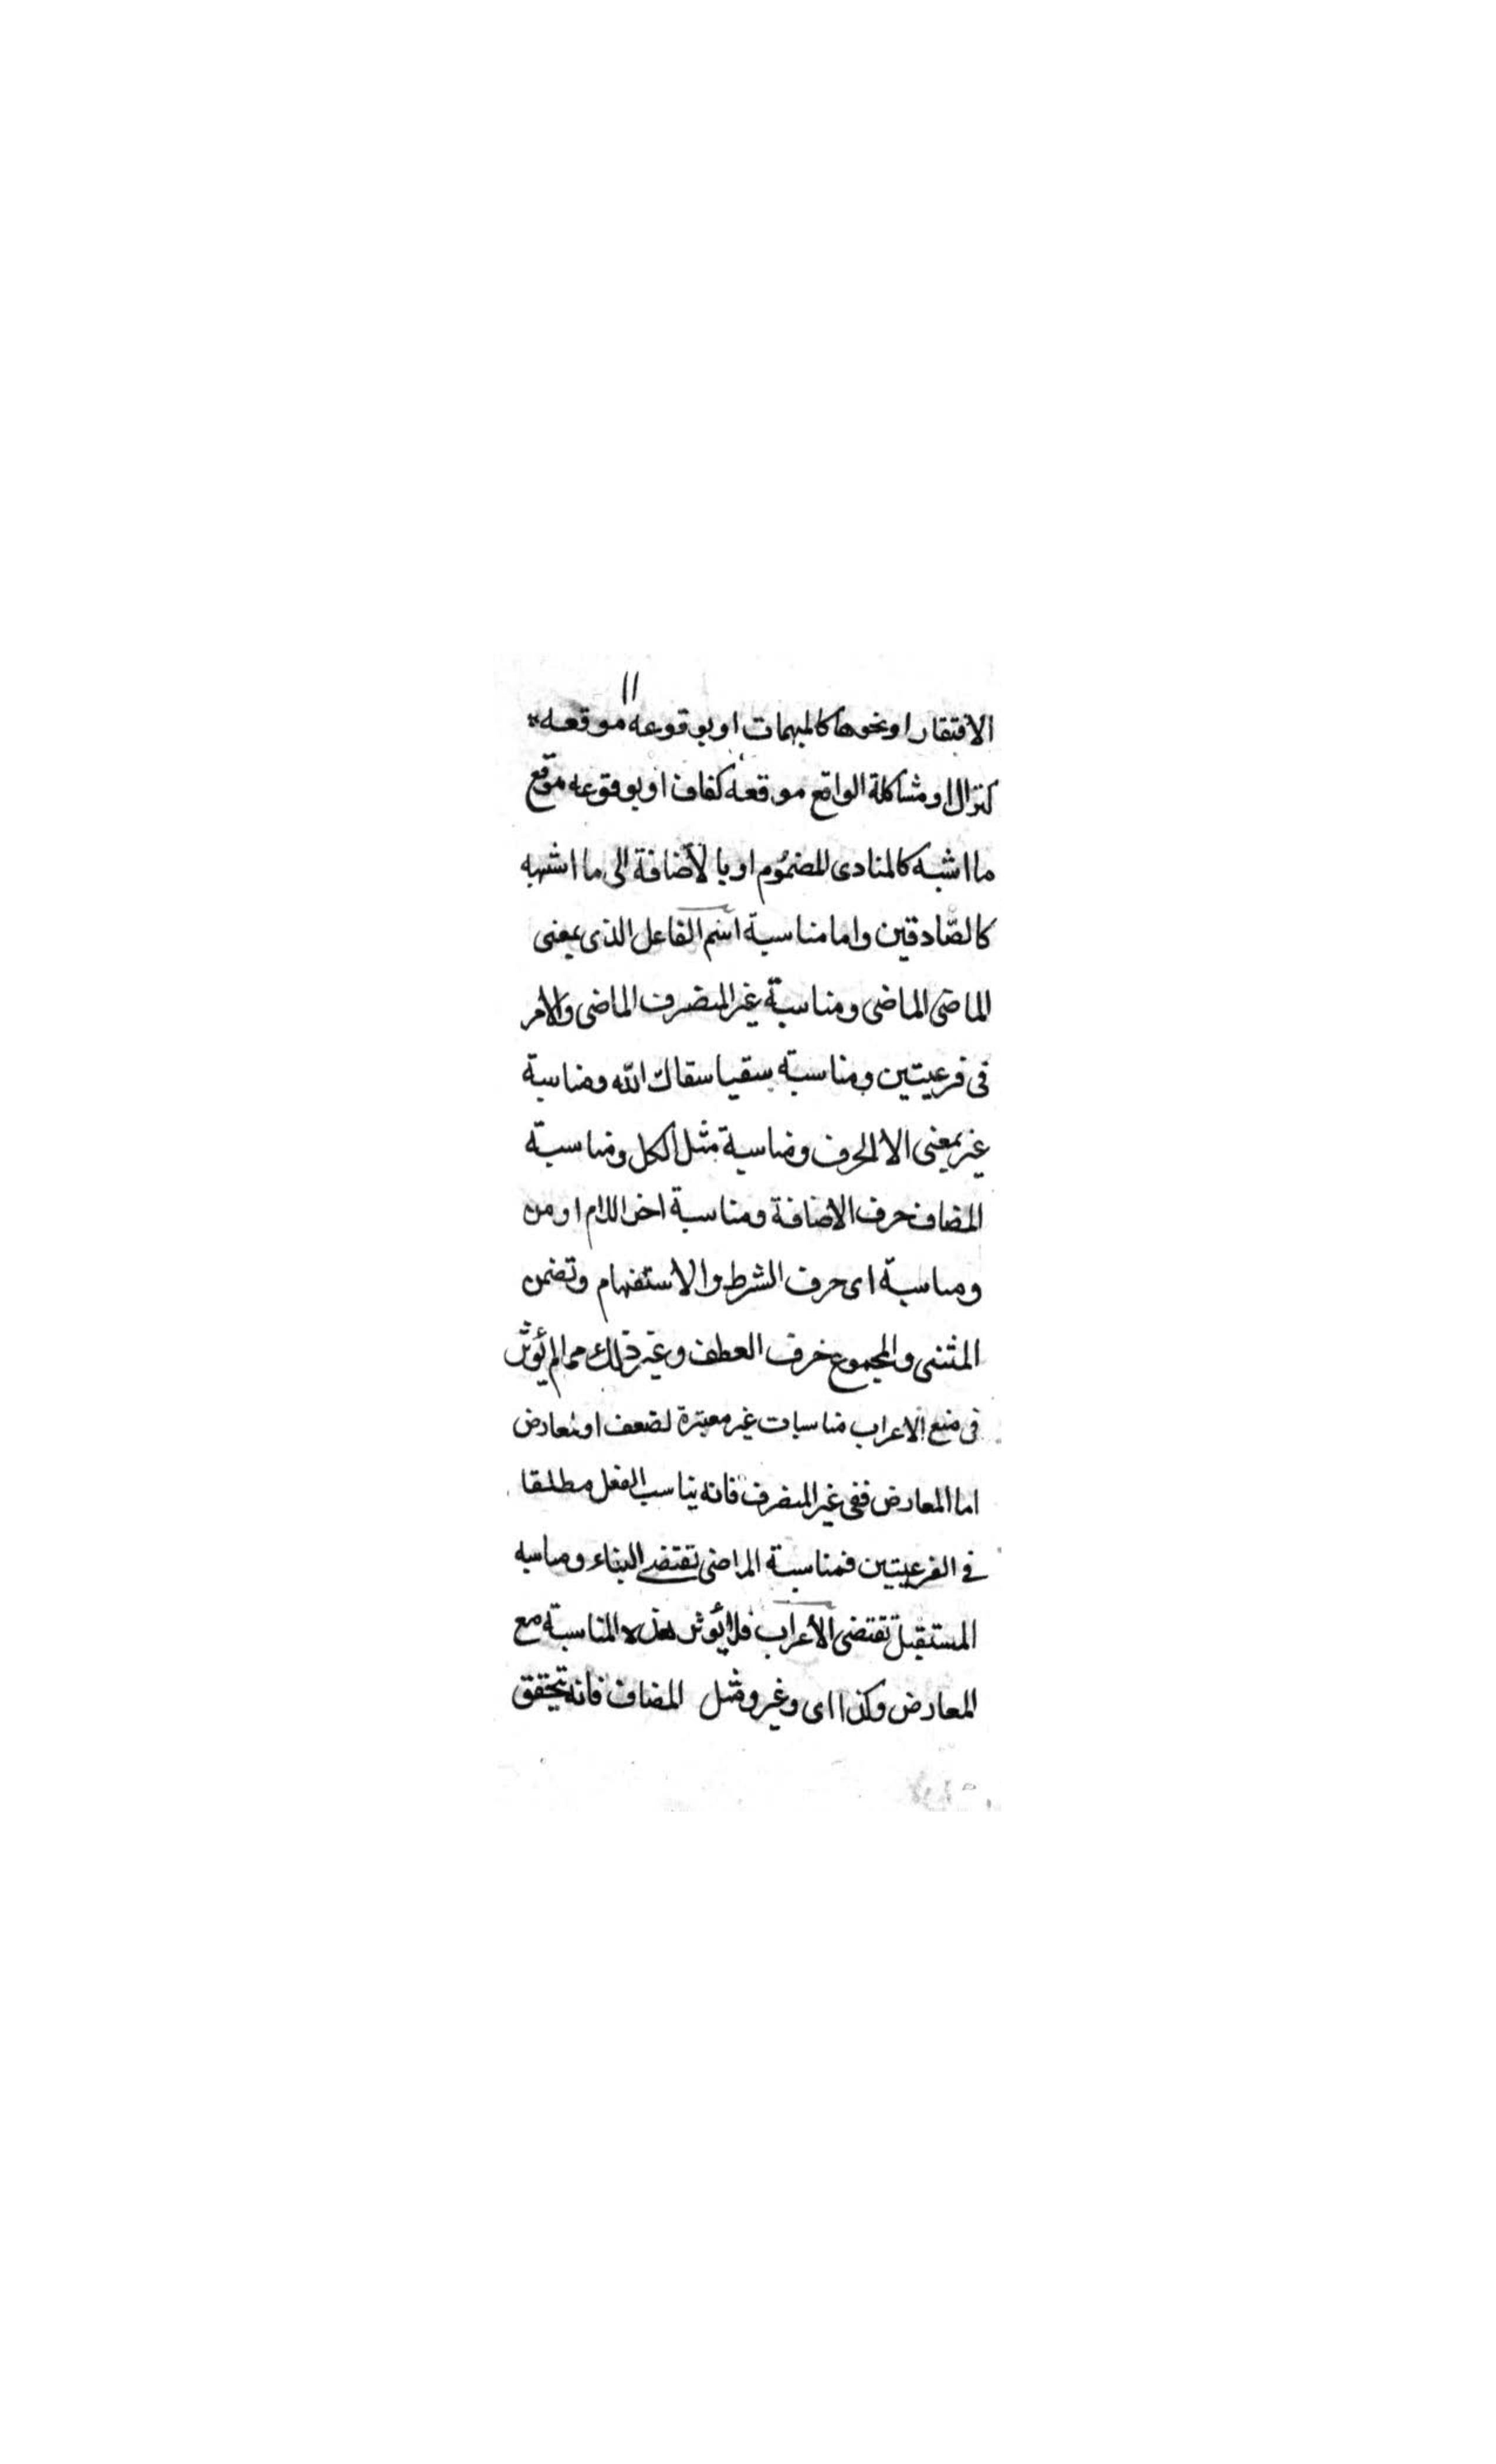 الافتقار او نحوها كالمبهمات او بوقوعه موقعه
كنزال او مشاكلة الواقع موقعه كفاف او بوقوعه موقع
ما اشبه كالمنادى المضموم او بالأضافة الى ما اشبهه
كالصّادقين واما مناسبة اسم الفاعل الذى بمعنى
الماضى الماضى ومناسبة غير المنصرف الماضى والامر
فى فرعيتين ومناسبة سقيا سقاك الله ومناسبة
غير بمعنى الا الحرف ومناسبة مثل الكل ومناسبة
المضاف حرف الاضافة ومناسبة اخر اللام او من
ومناسبة اى حرف الشرط والاستفهام وتضمن
المثنى والمجموع حرف العطف وغير ذلك مما لم يؤثر
فى منع الاعراب مناسبات غير معتبرة لضعف او تعارض
اما المعارض ففى غير المنصرف فانه يناسب الفعل مطلقا
فى الفرعيتين فمناسبة الماضى تقتضى البناء ومناسبه
المستقبل تقتضى الأعراب فلا يؤثر هذه المناسبة مع
المعارض وكذا اى وغير ومثل المضاف فانه تحقق